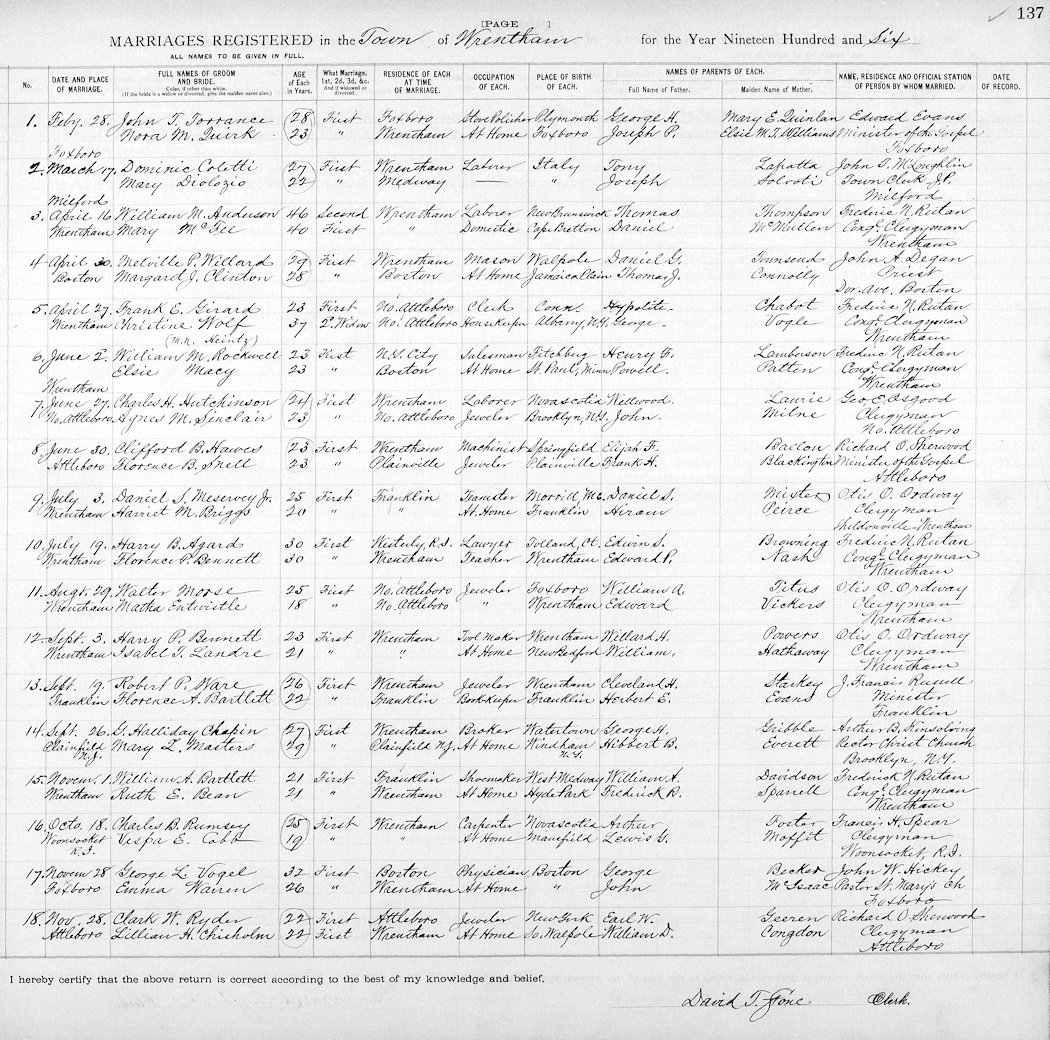 [PAGE ]
137
MARRIAGES REGISTERED in the Town of Wrentham for the Year Nineteen Hundred and Six
ALL NAMES TO BE GIVEN IN FULL.
No. DATE AND PLACE OF MARRIAGE. FULL NAMES OF GROOM AND BRIDE. Color, if other than white. (If the bride is a widow or divorced, give the maiden name also.) AGE of Each in Years. What Marriage, 1st, 2d, 3d, &c. And if widowed or divorced. RESIDENCE OF EACH AT TIME OF MARRIAGE. OCCUPATION OF EACH. PLACE OF BIRTH OF EACH. NAMES OF PARENTS OF EACH. Full Name of Father. Maiden Name of Mother. NAME, RESIDENCE AND OFFICIAL STATION OF PERSON BY WHOM MARRIED. DATE OF RECORD.
1. Feby. 28. John T. Torrance 28 First Foxboro Stove Polisher Plymouth George H. Mary E. Quinlan Edward Evans
Nora M. Quirk 23 " Wrentham At Home Foxboro Joseph P. Elsie M. T. Williams Minister of the Gospel
Foxboro Foxboro
2. March 17. Dominic Coletti 27 First Wrentham Laborer Italy Tony Lapatta John T. McLoughlin
Mary Drolozio 22 " Medway — " Joseph Solvoti Town Clerk J.P.
Milford Milford
3. April 16 William M. Anderson 46 Second Wrentham Laborer New Brunswick Thomas Thompson Frederic N. Rutan
Wrentham Mary McFee 40 First " Domestic Cape Bretton Daniel McMullen Cong. Clergyman
Wrentham
4. April 30. Melville P. Willard 29 First Wrentham Mason Walpole Daniel G. Townsend John A. Degan
Boston Margaret J. Clinton 28 " Boston At Home Jamaica Plain Thomas J. Connolly Priest
Dor. Ave. Boston
5. April 27. Frank E. Girard 23 First No. Attleboro Clerk Conn. Hypolite. Chabot Frederic N. Rutan
Wrentham Christine Wolf 37 2d Widow No. Attleboro Housekeeper Albany, N.Y. George. Vogle Cong. Clergyman
(M.N. Heintz) Wrentham
6. June 2. William M. Rockwell 23 First N.Y. City Salesman Fitchburg Henry F. Lamberson Frederic N. Rutan
Elsie Macy 23 " Boston At Home St. Paul, Minn Powell. Patten Cong. Clergyman
Wrentham Wrentham
7. June 27. Charles H. Hutchinson 24 First Wrentham Laborer Novascotia Wellwood. Laurie Geo E. Osgood
No. Attleboro Agnes M. Sinclair 23 " No. Attleboro Jeweler Brooklyn, N.Y. John. Milne Clergyman
No. Attleboro
8. June 30. Clifford B. Hawes 23 First Wrentham Machinist Springfield Elijah F. Ballou Richard O. Sherwood
Attleboro Florence B. Snell 23 " Plainville Jeweler Plainville Frank H. Blackington Minister of the Gospel
Attleboro
9. July 3. Daniel S. Meservey Jr. 25 First Franklin Teamster Morrill, Me. Daniel S. Mixter Otis O. Ordway
Wrentham Harriet M. Briggs 20 " " At Home Franklin Hiram Peirce Clergyman
Sheldonville-Wrentham
10. July 19. Harry B. Agard 30 First Westerly, R.I. Lawyer Tolland, Ct. Edwin S. Browning Frederic N. Rutan
Wrentham Florence P. Bennett 30 Wrentham Teacher Wrentham Edward P. Nash Cong. Clergyman
Wrentham
11. Augt. 29. Walter Morse 25 First No. Attleboro Jeweler Foxboro William A. Titus Otis O. Ordway
Wrentham Matha Entwistle 18 " No. Attleboro " Wrentham Edward Vickers Clergyman
Wrentham
12. Sept. 3. Harry P. Bennett 23 First Wrentham Tool Maker Wrentham Willard H. Powers Otis O. Ordway
Wrentham Isabel T. Landre 21 " " At Home New Bedford William. Hathaway Clergyman
Wrentham
13. Sept. 19. Robert P. Ware 26 First Wrentham Jeweler Wrentham Cleveland H. Starkey J. Francis Russell
Franklin Florence A. Bartlett 22 " Franklin Book-keeper Franklin Herbert E. Evans Minister
Franklin
14. Sept. 26. G. Halliday Chapin 27 First Wrentham Broker Watertown George H. Gribble Arthur B. Kinsolving
Plainfield Mary L. Masters 29 " Plainfield N.J. At Home Windham Hibbert B. Everett Rector Christ Church
N.J. N.Y. Brooklyn, N.Y.
15. Novem. 1. William A. Bartlett 21 First Franklin Shoemaker West Medway William A. Davidson Frederick N. Rutan
Wrentham Ruth E. Bean 21 " Wrentham At Home Hyde Park Frederick R. Sparrell Cong. Clergyman
Wrentham
16. Octo. 18. Charles B. Rumsey 25 First Wrentham Carpenter Novascotia Arthur Foster Francis H. Spear
Woonsocket Vespa E. Cobb 19 " " At Home Mansfield Lewis G. Moffit Clergyman
R.I. Woonsocket, R.I.
17. Novem 28 George L. Vogel 32 First Boston Physician Boston George Becker John W. Hickey
Foxboro Emma Warren 26 " Wrentham At Home " John McIsaac Pastor St. Mary's Ch
Foxboro
18. Nov. 28. Clark W. Ryder 22 First Attleboro Jeweler New York Earl W. Geeren Richard O. Sherwood
Attleboro Lillian H. Chisholm 22 First Wrentham At Home So. Walpole William D. Congdon Clergyman
Attleboro
I hereby certify that the above return is correct according to the best of my knowledge and belief.
David T. Stone Clerk.